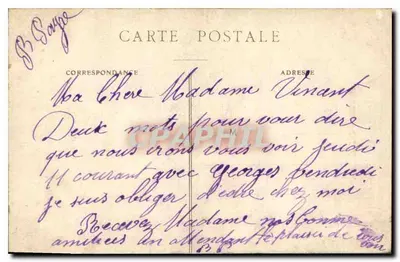 B. Parze
CARTE POSTALE
CORRESPONDANCE
ADRESSE
Ma Chere Madame Vinant
Deux mots pour vous dire
que nous irons vous voir jeudi
11 courant avec Georges vendredi
je suis obliger d'edre chez moi
Recevez Madame nos bonne
amitiees en attendant le plaisir de vous
voir